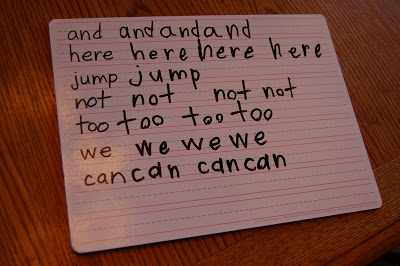 and andandand
here here here here
jump jump
not not not not
too too too too
we we we we
can can can can